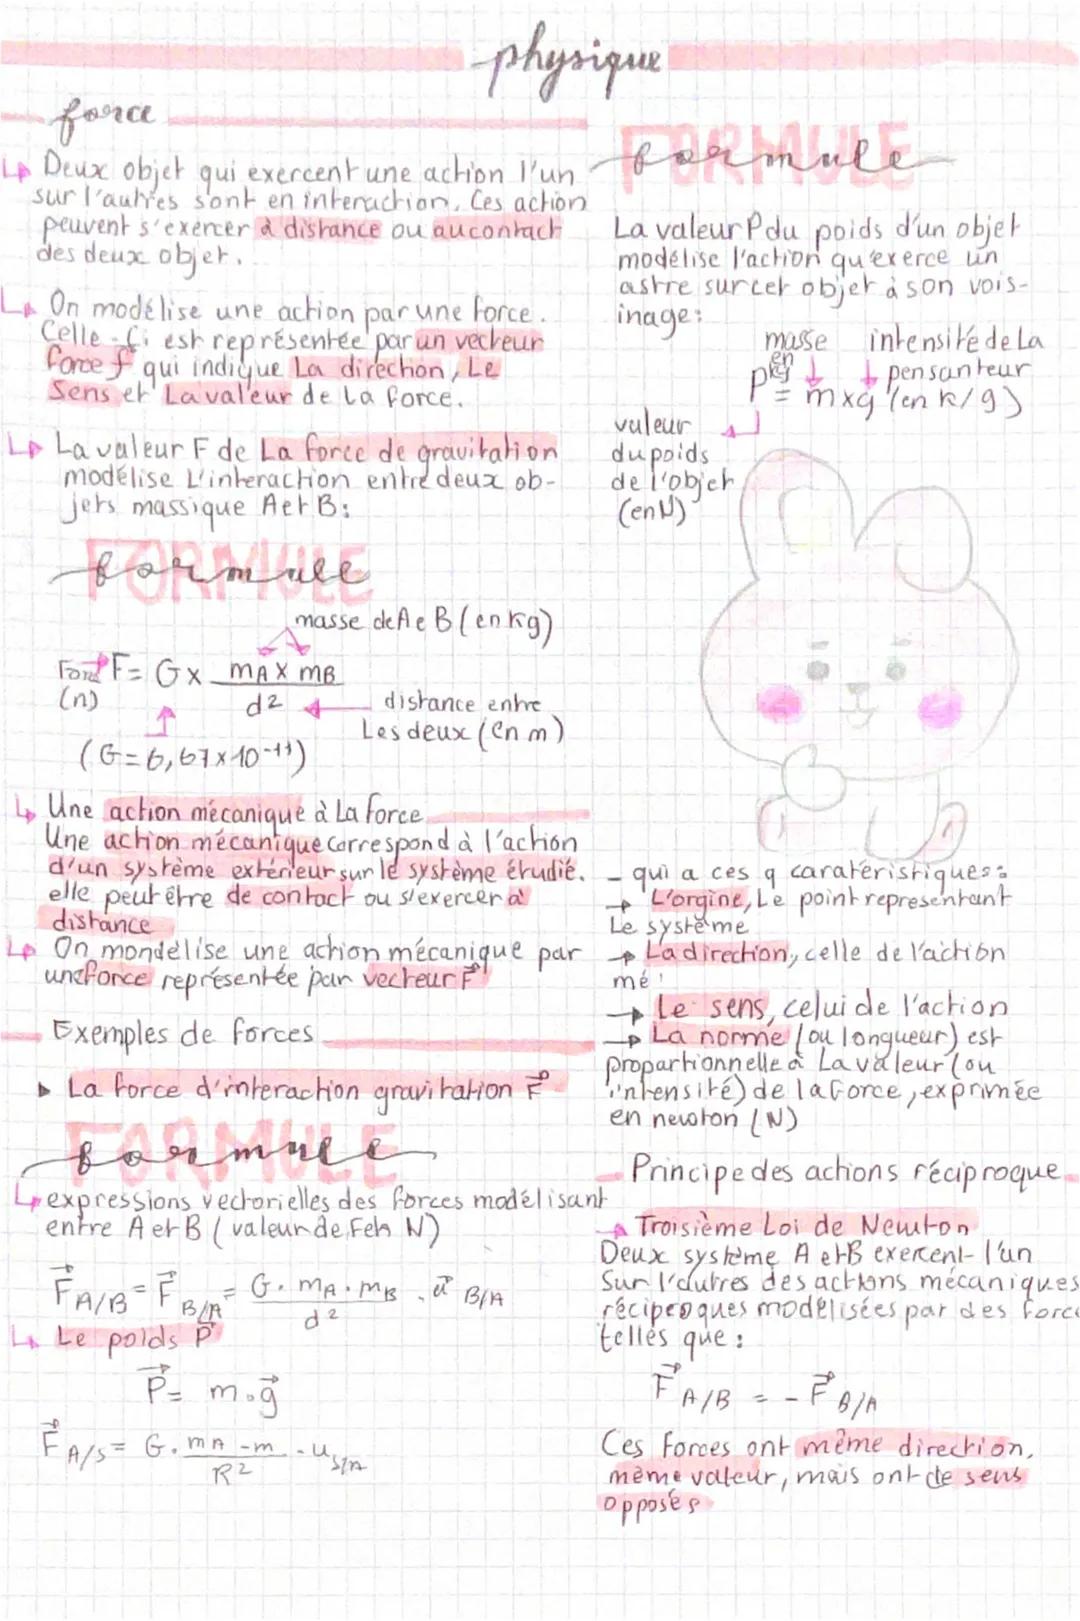 physique
force
Deux objet qui exercent une action l'un
sur l'autres sont en interaction. Ces action
peuvent s'exercer à distance ou au contact
des deux objet.
On modélise une action par une force.
Celle-ci est représentée par un vecteur
force f qui indique La direction, Le
Sens et La valeur de La force.
La valeur F de La force de gravitation
modélise L'interaction entre deux ob-
jets massique A et B:
FORMULE
formule
masse de A e B (en kg)
Force F = G x mA x mB
(n) d²
distance entre
Les deux (en m)
(G=6,67x10-11)
Une action mécanique à La force
Une action mécanique correspond à l'action
d'un système extérieur sur le système étudié.
elle peut être de contact ou s'exercer à
distance
On mondélise une action mécanique par
une force représentée par vecteur F⃗
Exemples de forces
La force d'interaction gravitation F⃗
FORMULE
formule
expressions vectorielles des forces modélisant
entre A et B (valeur de F en N)
F⃗ A/B = F⃗ B/A = G. mA. mB . u⃗ B/A
d²
Le poids P⃗
P⃗ = m.g⃗
F⃗ A/S = G. mA -m . u S/A
R²
FORMULE
formule
La valeur P du poids d'un objet
modélise l'action qu'exerce un
astre sur cet objet à son vois-
inage:
masse intensité de La
en kg pensanteur
P = m x g (en k/g)
valeur
du poids
de l'objet
(en N)
- qui a ces q caratéristiques:
L'orgine, Le point representant
Le système
La direction, celle de l'action
mé
Le sens, celui de l'action
La norme (ou longueur) est
proportionnelle à La valeur (ou
intensité) de la force, exprimée
en newton (N)
Principe des actions réciproque
Troisième Loi de Newton
Deux système A et B exercent l'un
Sur l'autres des actions mécaniques
réciproques modélisées par des force
telles que:
F⃗ A/B = - F⃗ B/A
Ces forces ont même direction,
même valeur, mais ont de sens
opposés